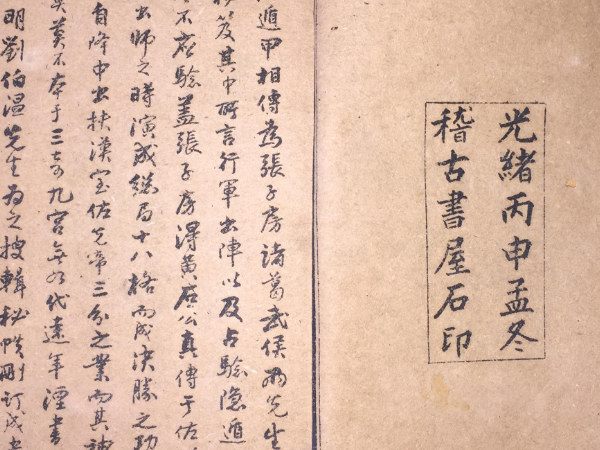 光緒丙申孟冬
稽古書屋石印
遁甲相傳為張子房諸葛武侯兩先生
笈其中所言行軍出陣以及占驗隱遁
不應驗蓋張子房得黃石公真傳于佐
出師之時演成總局十八格而成決勝之功
自隆中出扶漢室佐先帝三分之業而其神
莫不本于三奇九宮無如代遠年湮書
明劉伯溫先生為之搜輯秘帙刪訂成書